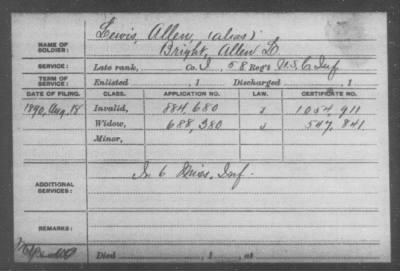 Lewis, Allen, (alias)
NAME OF SOLDIER: Bright, Allen L
SERVICE: Late rank, Co. I, 58 Reg't U.S.C. Inf
TERM OF SERVICE: Enlisted , 1 Discharged , 1
DATE OF FILING. CLASS. APPLICATION NO. LAW. CERTIFICATE NO.
1890, Aug. 18 Invalid, 884,680 J 1054,911
Widow, 688,380 J 547,841
Minor,
ADDITIONAL SERVICES: In 6 Miss. Inf.
REMARKS:
Died , 1 , at